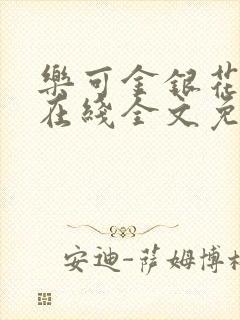 樂可金銀花
在綫全文免
安迪-薩姆博格